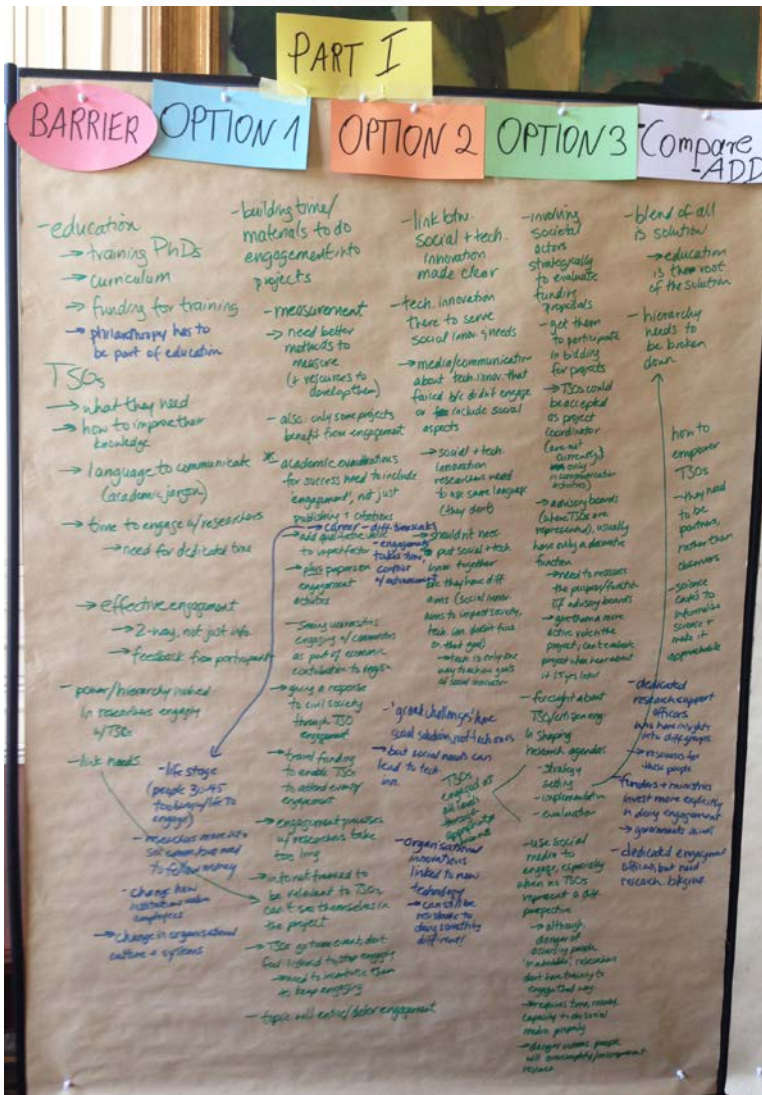 PART I
BARRIER
OPTION 1
OPTION 2
OPTION 3
Compare
-ADD
-education
→ training PhDs
→ curriculum
→ funding for training
→ philanthropy has to
be part of education
TSOs
→ what they need
→ how to improve their
knowledge
→ language to communicate
(academic jargon)
→ time to engage w/researchers
→ need for dedicated time
→ effective engagement
→ 2-way, not just info.
→ feedback from participants
-power/hierarchy involved
in researchers engaging
w/TSOs
-link needs
-life stage
(people 30-45
too busy w/life to
engage)
need to follow money
-change how
institutions
employees
→ change in organisational
culture + systems
-building time/
materials to do
engagement into
projects
-measurement
→ need better
methods to
measure
(+ resources to
develop them)
- also: only some projects
benefit from engagement
-academic evaluations
for success need to include
'engagement', not just
publishing + citations
→ career - diff timescales
→ add qualitative value
to impact factor
-engagement
takes time,
→ plus papers on
engagement
activities
engaging w/
as part of economic
contribution to region
→ giving a response
to civil society
through TSO
engagement
→ travel funding
to enable TSOs
to attend events/
engagement
→ engagement processes
w/researchers take
too long
→ if not framed to
be relevant to TSOs
can't see themselves in
the project
→ TSOs go to one event, don't
feel listened to, stop engaging
→ need to incentivise them
to keep engaging
- topic will entice/deter engagement
-link btw.
social + tech.
innovation
made clear
-tech. innovation
there to serve
social innov. & needs
→ media/communication
about tech. innov. that
failed b/c didn't engage
or include social
aspects
→ social + tech.
innovation
researchers need
to use same language
(they don't)
→ shouldn't
put social + tech
innov. together
they have diff.
aims (social innov.
aims to impact society,
tech. inn. doesn't focus
on that goal)
→ tech. is only one
way to achieve goals
of social innovation
-'grand challenges' have
social solutions, not tech ones
→ but social needs can
lead to tech
inn.
TSOs
engaged at
all levels
through
appropriate
-Organisational
innovations
linked to new
technology
→ can still be
resistance to
doing something
different
-involving
societal
actors
strategically
to evaluate
funding
proposals
-get them
to participate
in bidding
for projects
→ TSOs could
be accepted
as project
coordinator
(are not
currently)
only
in communication
activities)
→ advisory boards
(where TSOs are
represented), usually
have only a decorative
function
→ need to reassess
the purpose/function
of advisory boards
→ give them a more
active role in the
project, can't evaluate
project when hear about
it 1.5 yrs later
-foresight about
TSO/citizen eng.
in shaping
research agendas
-strategy
setting
-implementation
-evaluation
-use social
media to
engage, especially
when TSOs
represent a diff
perspective
→ although,
danger of
people
researchers
don't have training to
engage that way
→ requires time, money,
capacity to do social
media properly
→ danger people
will oversimplify/misrepresent
research
-blend of all
is solution
→ education
is the root
of the solution
-hierarchy
needs to
be broken
down
how to
empower
TSOs
-they need
to be
partners,
rather than
observers
-science
cafés to
informalise
science +
make it
approachable
-dedicated
research support
officers
who have insights
into diff groups
→ resources for
these people
-funders + ministries
invest more explicitly
in doing engagement
→ governments
-dedicated engagement
officers, but need
research bkgrnd.